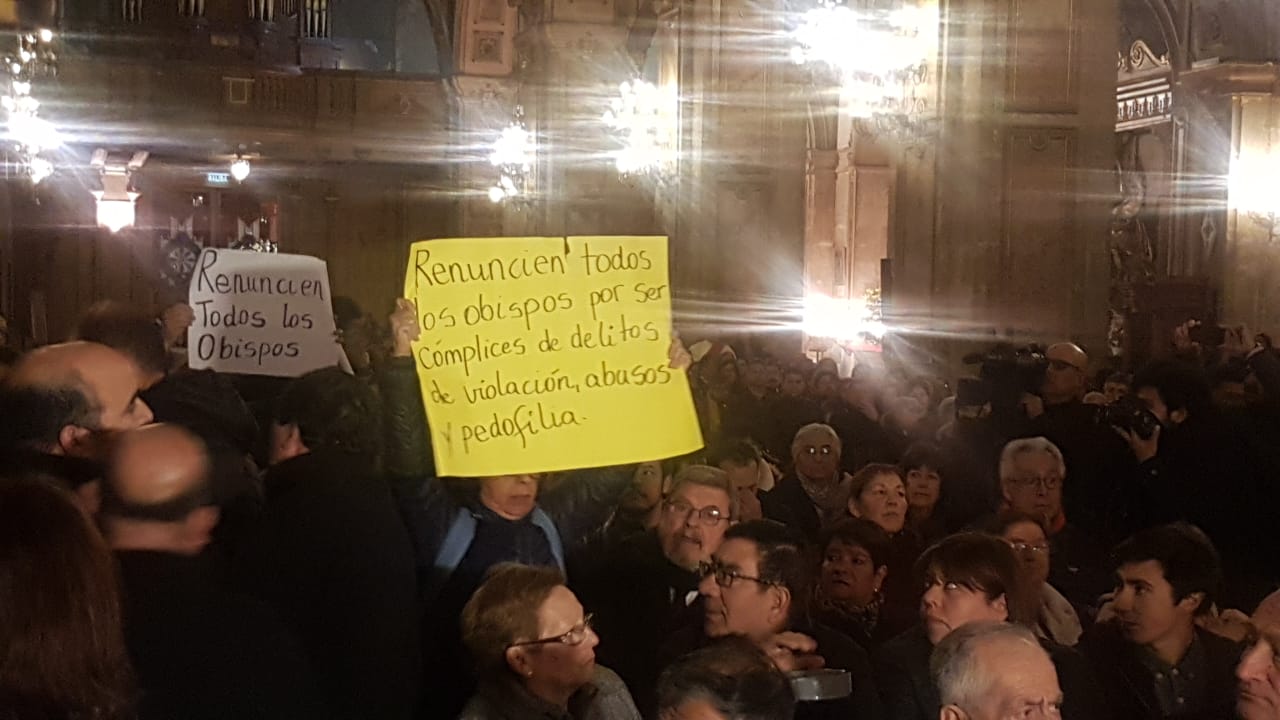 Renuncien
Todos los
Obispos
Renuncien todos
los obispos por ser
Cómplices de delitos
de violación, abusos
y pedofilia.